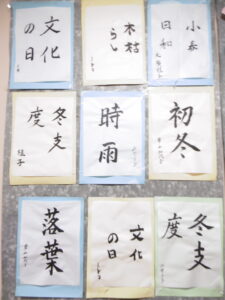 小春
日和
木枯
らし
文化
の日
初冬
時雨
冬支
度
佳子
冬支
度
文化
の日
落葉